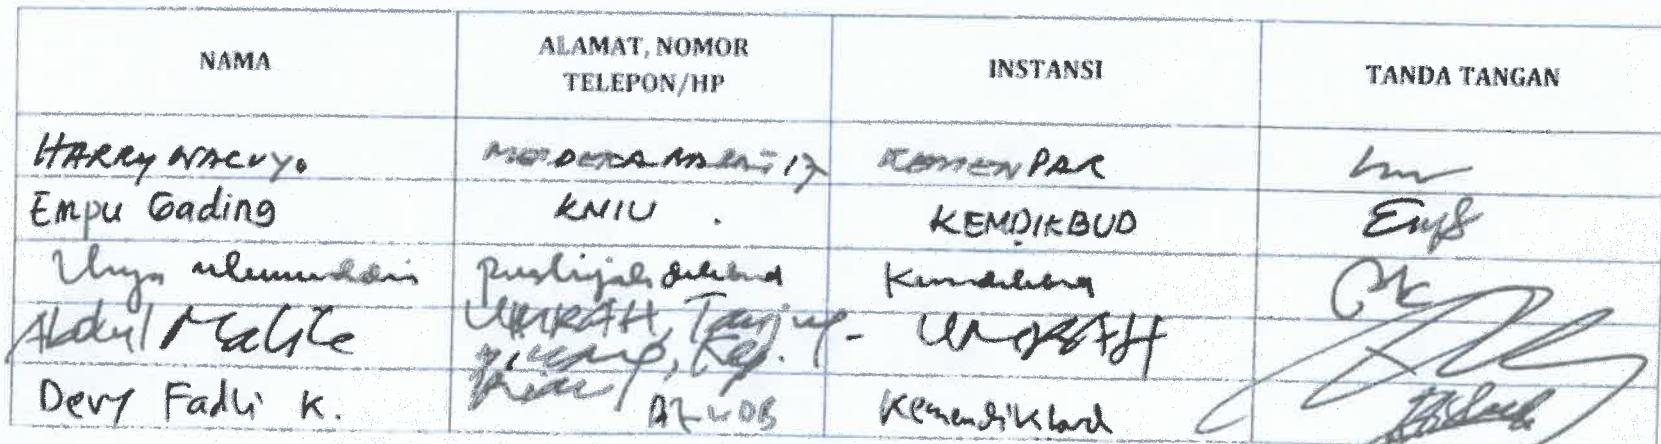 NAMA ALAMAT, NOMOR TELEPON/HP INSTANSI TANDA TANGAN
HARRY WALUYO MERDEKA BARAT 17 KEMENPAR
Empu Gading KNIU . KEMDIKBUD
Puslitjak dikbud Kemdikbud
Abdul Malik UMRAH, Tanjung- UMRAH
pinang, Kep.
Riau
Devy Fadli K. Kemendikbud